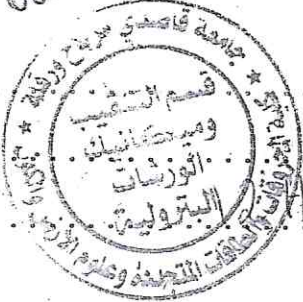 جامعة قاصدي مرباح ورقلة
قسم التنقيب
وميكانيك
الورشات
البترولية
المحروقات والطاقات المتجددة وعلوم الأرض